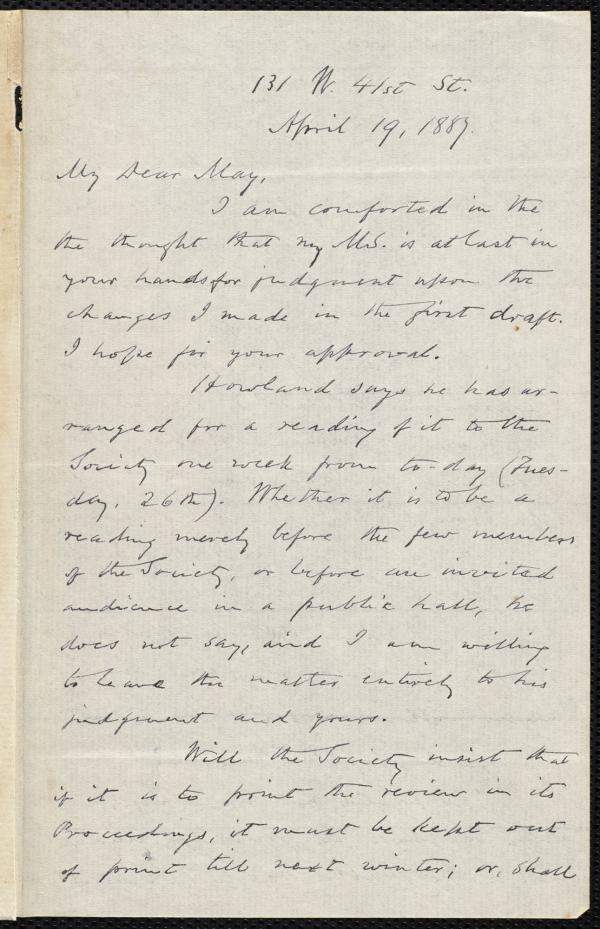 131 W. 41st St.
April 19, 1887.
My Dear May,
I am comforted in the
the thought that my M.S. is at last in
your hands for judgment upon the
changes I made in the first draft.
I hope for your approval.
Howland says he has ar-
ranged for a reading of it to the
Society one week from to-day (Tues-
day, 26th). Whether it is to be a
reading merely before the few members
of the Society, or before an invited
audience in a public hall, he
does not say, and I am willing
to leave the matter entirely to his
judgment and yours.
Will the Society insist that
if it is to print the review in its
Proceedings, it must be kept out
of print till next winter; or, shall